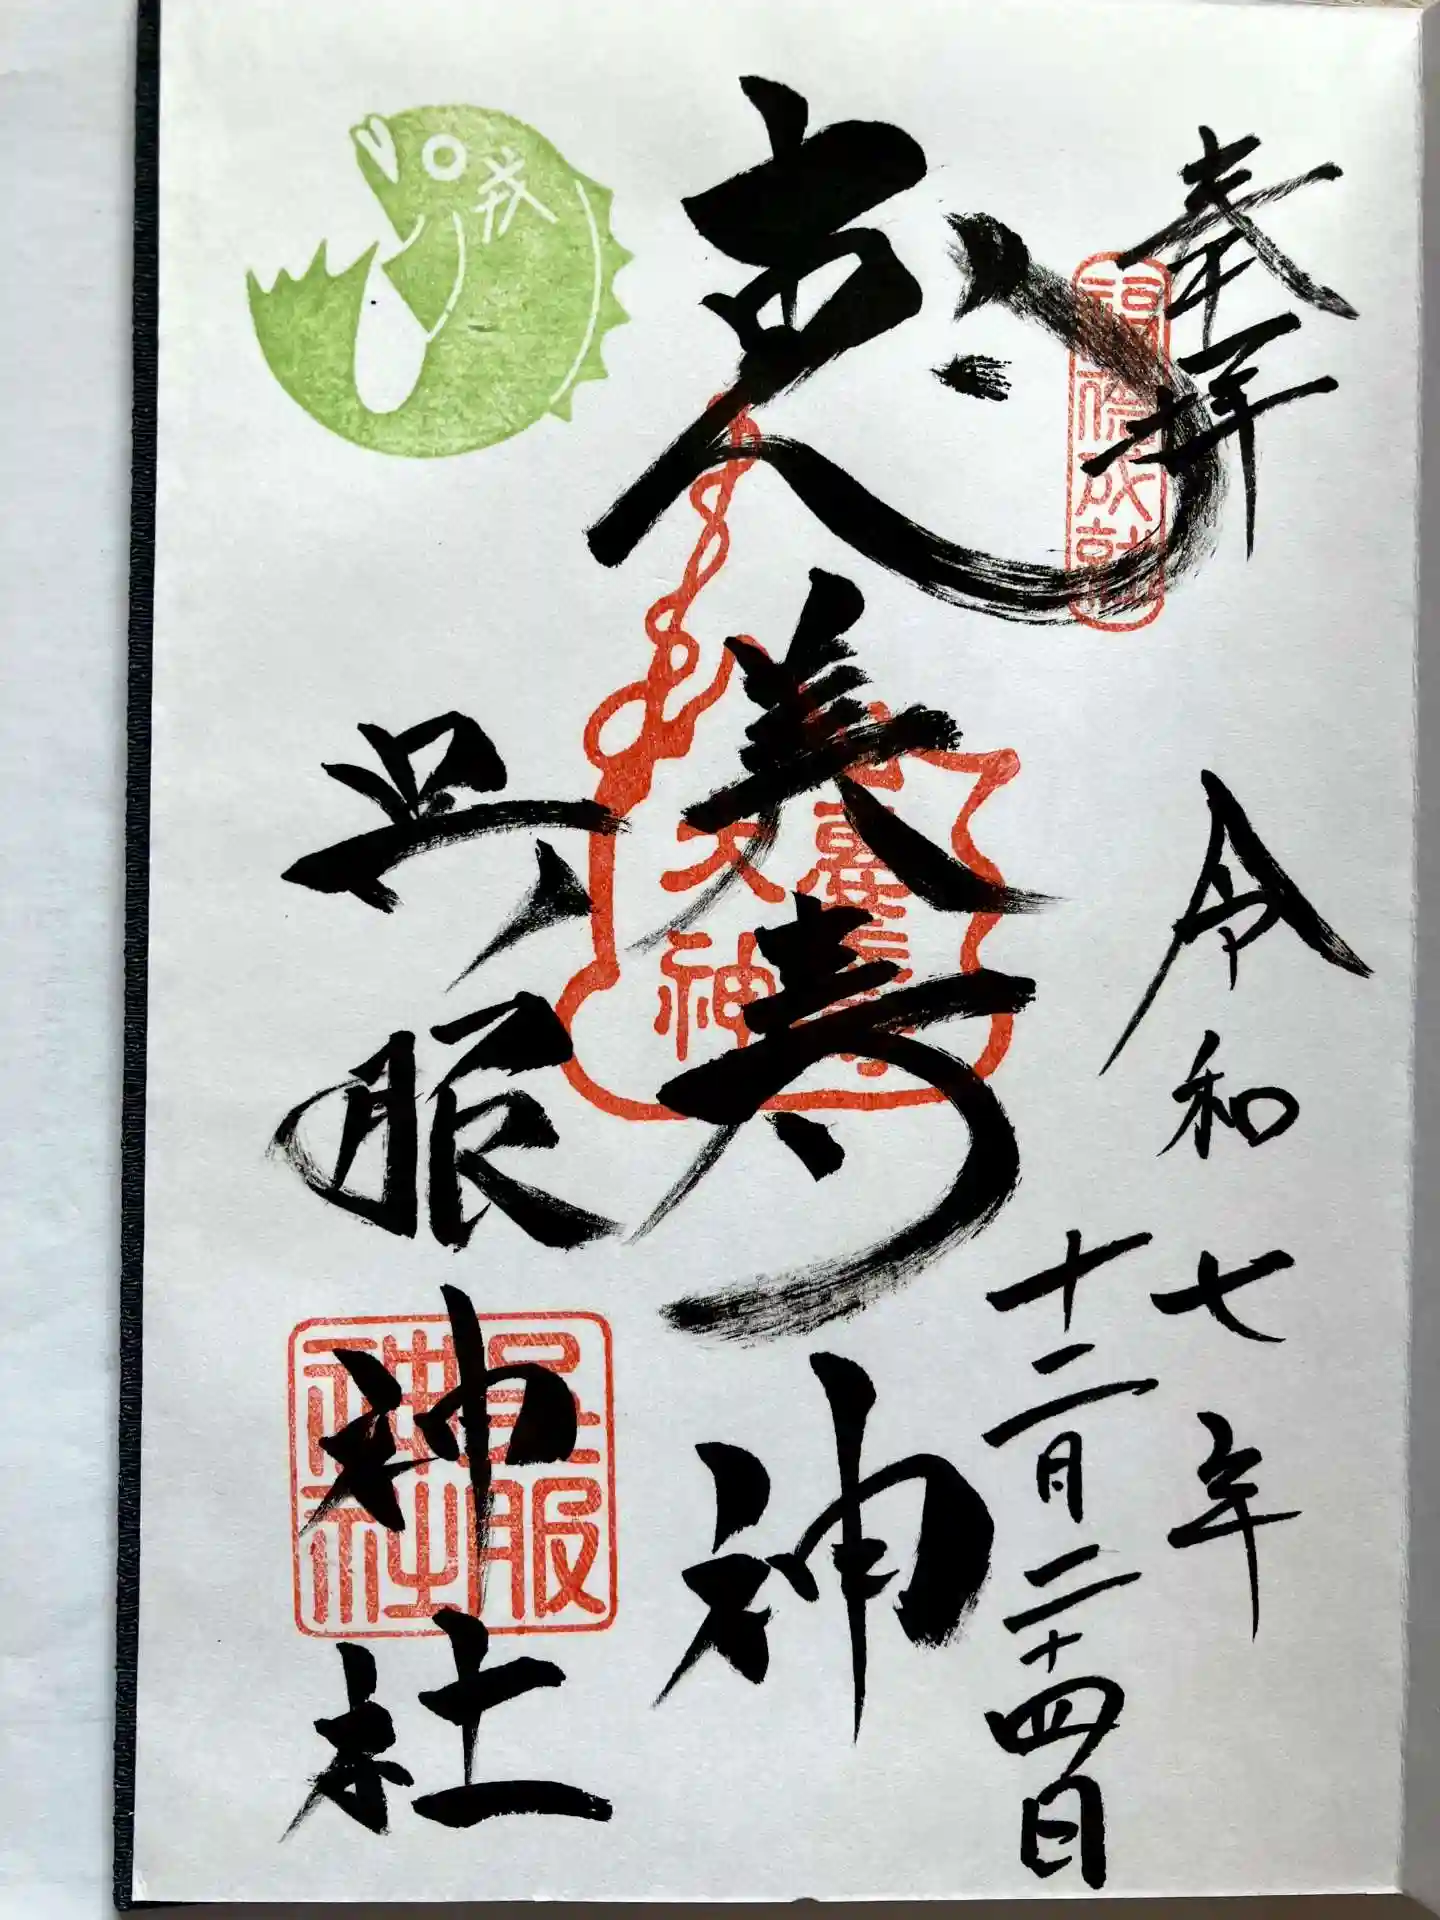 奉拝
福徳成就
令和七年
十二月二十四日
恵美寿神
大神
戎
呉服神社
呉服神社